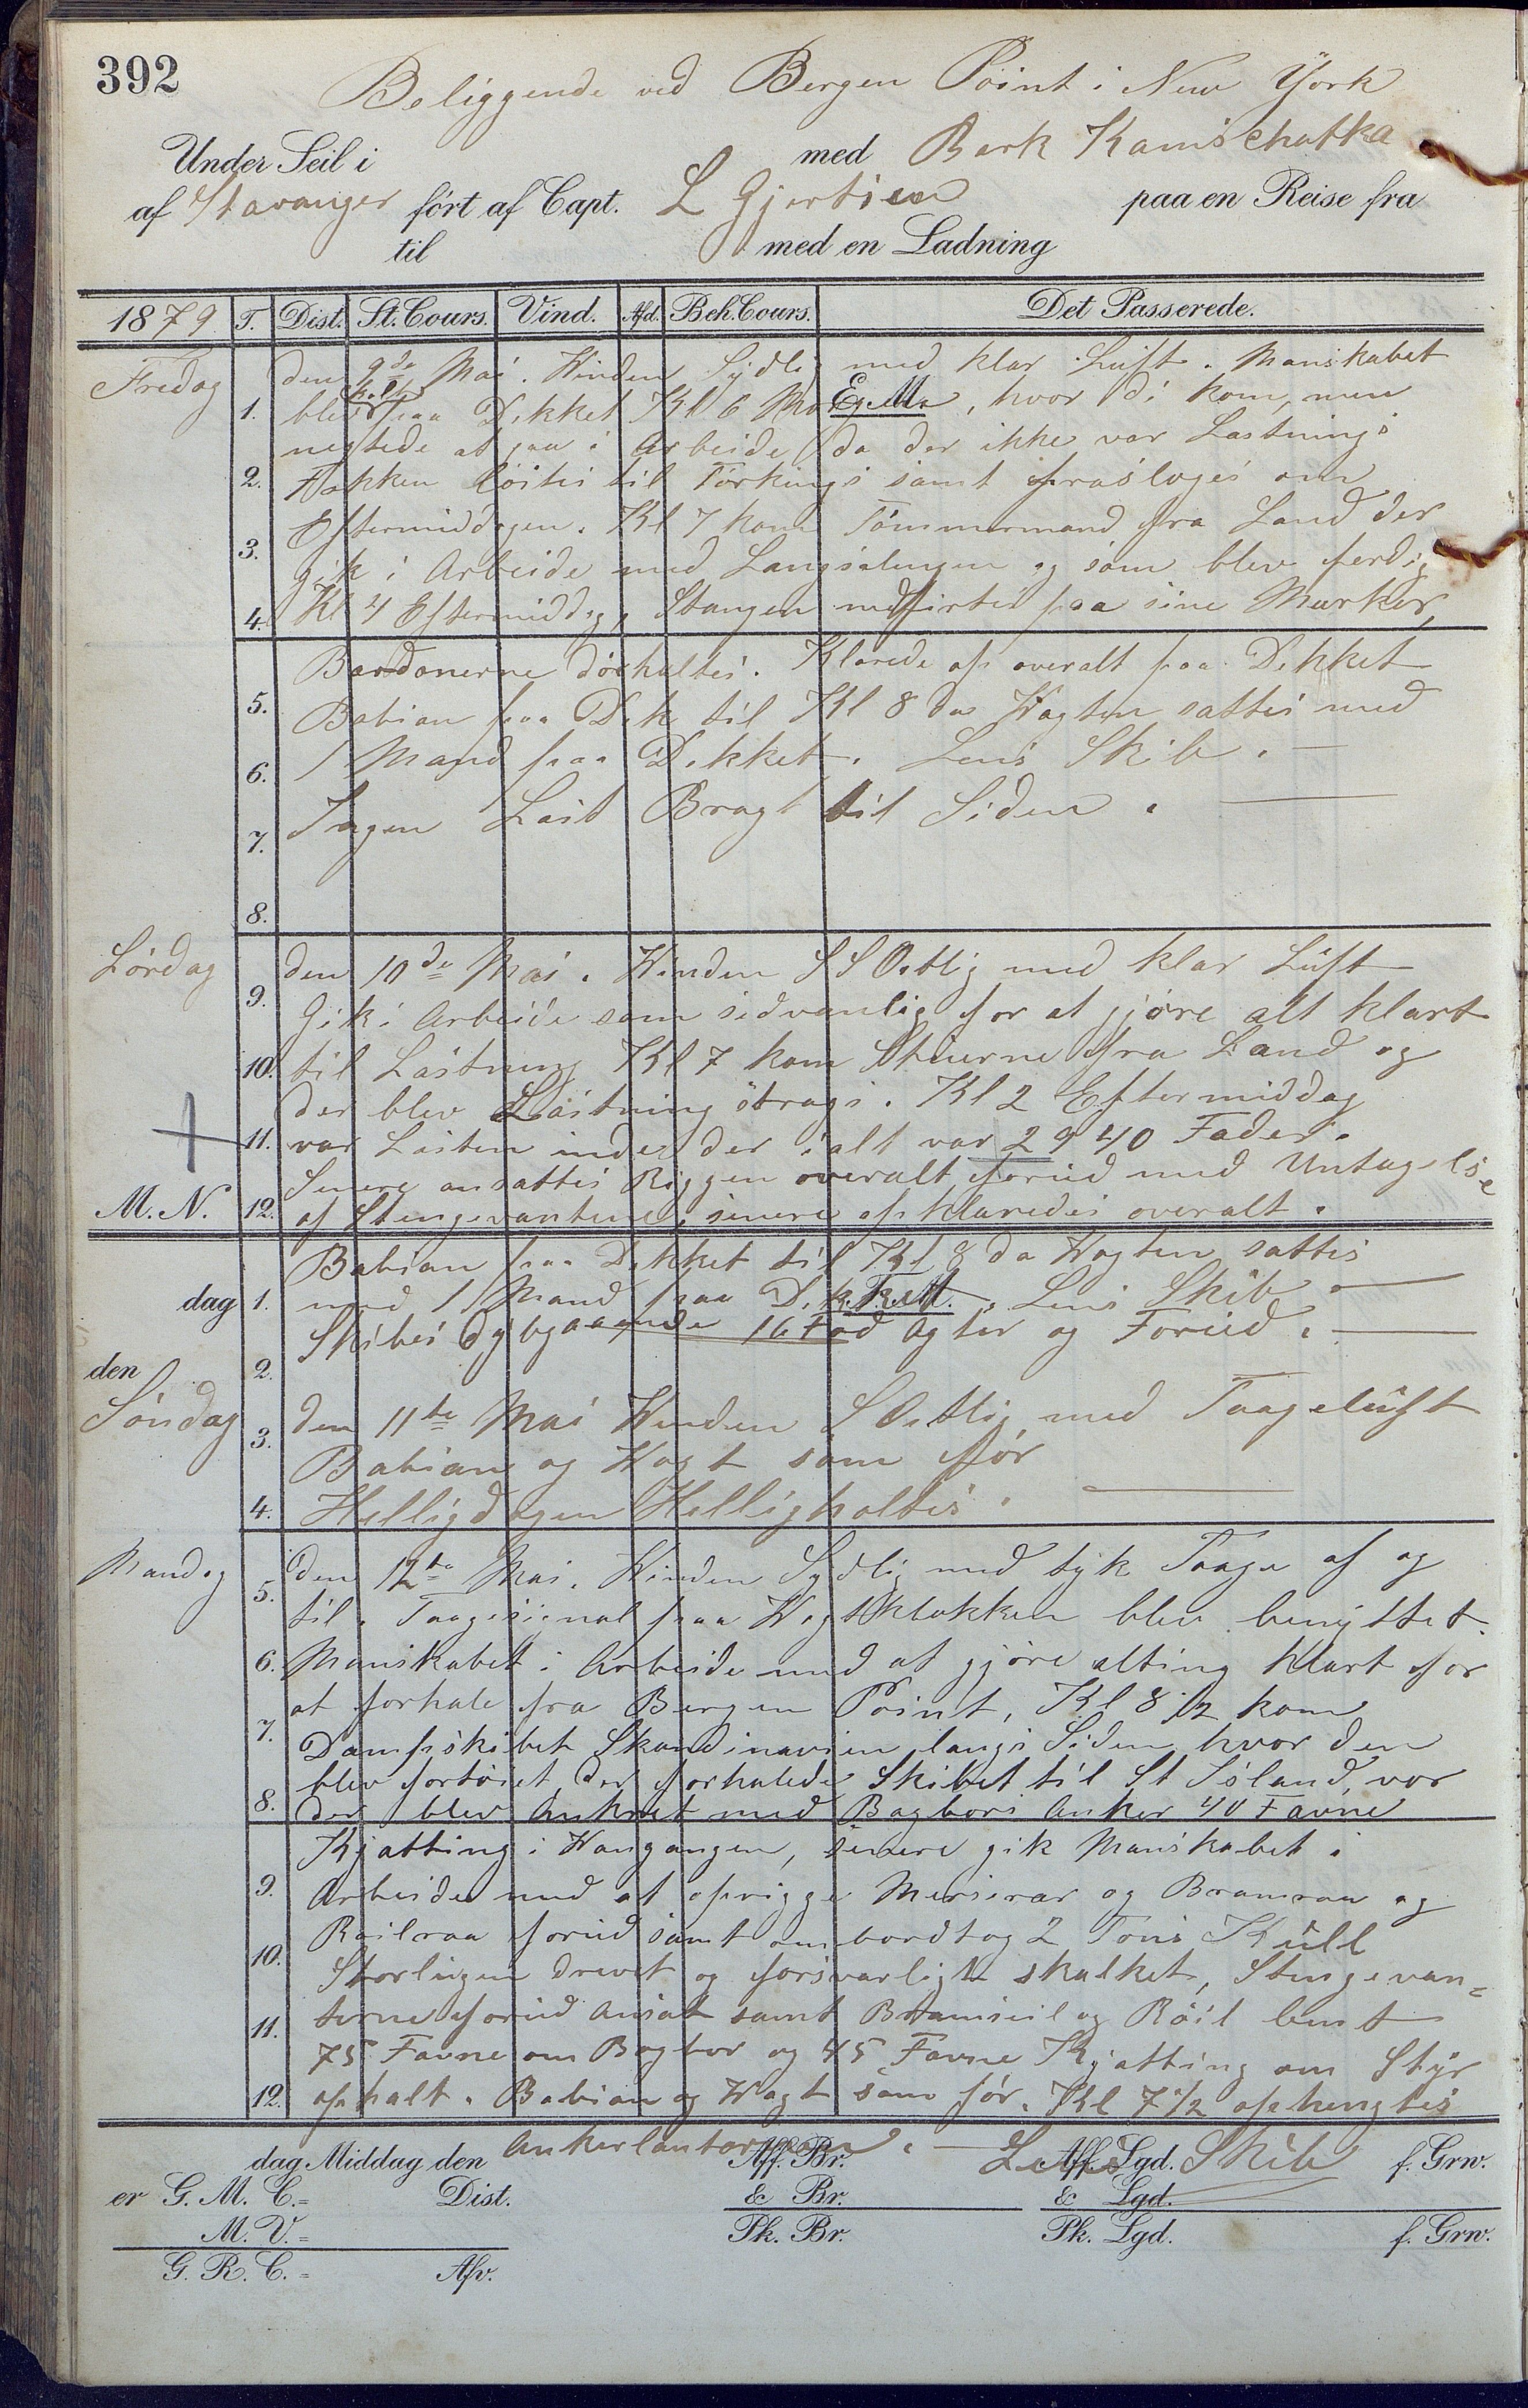 392
Beliggende ved Bergen Point i New York
Under Seil i med Bark Kamschatka
af Stavanger ført af Capt. L Gjertsen paa en Reise fra
til med en Ladning
1879 T. Dist. St. Cours. Vind. Afd. Beh. Cours. Det Passerede.
Fredag den 9de Mai. Vinden Sydlig med klar Luft. Manskabet
1. blev kalt paa Dekket Kl 6 Mo E.g.M. , hvor di kom, men
negtede at gaa i Arbeide da der ikke var Lastning
2. Fokken löstes til Törkings samt frasloges om
Eftermiddagen. Kl 7 kom Tömmermand fra Land der
3. gik i Arbeide med Langsalingen og som blev ferdig
4. Kl 4 Eftermiddag, Stangen nedfirtes paa sine Merker,
Bardonerne döshaltes. Klarede op overalt paa Dekket
5. Babian paa Dek til Kl 8 da Vagten sattes med
6. 1 Mand paa Dekket. Lens Skib. —
7. Ingen Last Bragt til Siden. —
8.
Lördag den 10de Mai. Vinden SSOstlig med klar Luft
9. Gik i Arbeide som sedvanlig for at gjöre alt klart
10. til Lastning Kl 7 kom Stuerne fra Land og
der blev Lastning strags. Kl 2 Eftermiddag
11. var Lasten inde der i alt var 2940 Fader.
Senere ansattes Riggen overalt forud med Untagelse
M. N. 12. af Stengevantene, senere opklaredes overalt.
Babian paa Dekket til Kl 8 da Vagten sattes
dag 1. med 1 Mand paa Dek. R.M. , Lens Skib —
Skibes Dybgaaende 16 Fod Agter og Forud. —
den 2.
Söndag 3. den 11te Mai Vinden SOstlig med Taageluft
Babian og Vagt som för
4. Helligdagen Helligholtes. —
Mandag 5. den 12te Mai. Vinden Sydlig med tyk Taage af og
til. Taagesignal paa Vagtklokken blev benyttet.
6. Manskabet i Arbeide med at gjöre alting klart for
at forhale fra Bergen Point, Kl 8 1/2 kom
7. Dampskibet Skandinavien langs Siden hvor den
blev fortöiet der forhalede Skibet til St Island, vor
8. der blev Ankret med Bagbors Anker 40 Favne
Kjætting i Vangangen, senere gik Manskabet i
9. Arbeide med at oprigge Merseraa og Bramraa og
Röilraa forud samt ombordtog 2 Tons Kull
10. Storlugen drevet og forsvarligt skalket, Stengevan=
11. terne forud Ansat samt Bramseil og Röil bent
75 Favne om Bagbor og 45 Favne Kjætting om Styr
12. ophalt. Babian og Vagt som för. Kl 7 1/2 ophengtes
Ankerlanternen. — Lens Skib
dag Middag den Aff. Br. Aff. Lgd. f. Grw.
er G. M. C.= Dist. & Br. & Lgd.
M. V.= Pk. Br. Pk. Lgd. f. Grw.
G. R. C.= Afv.